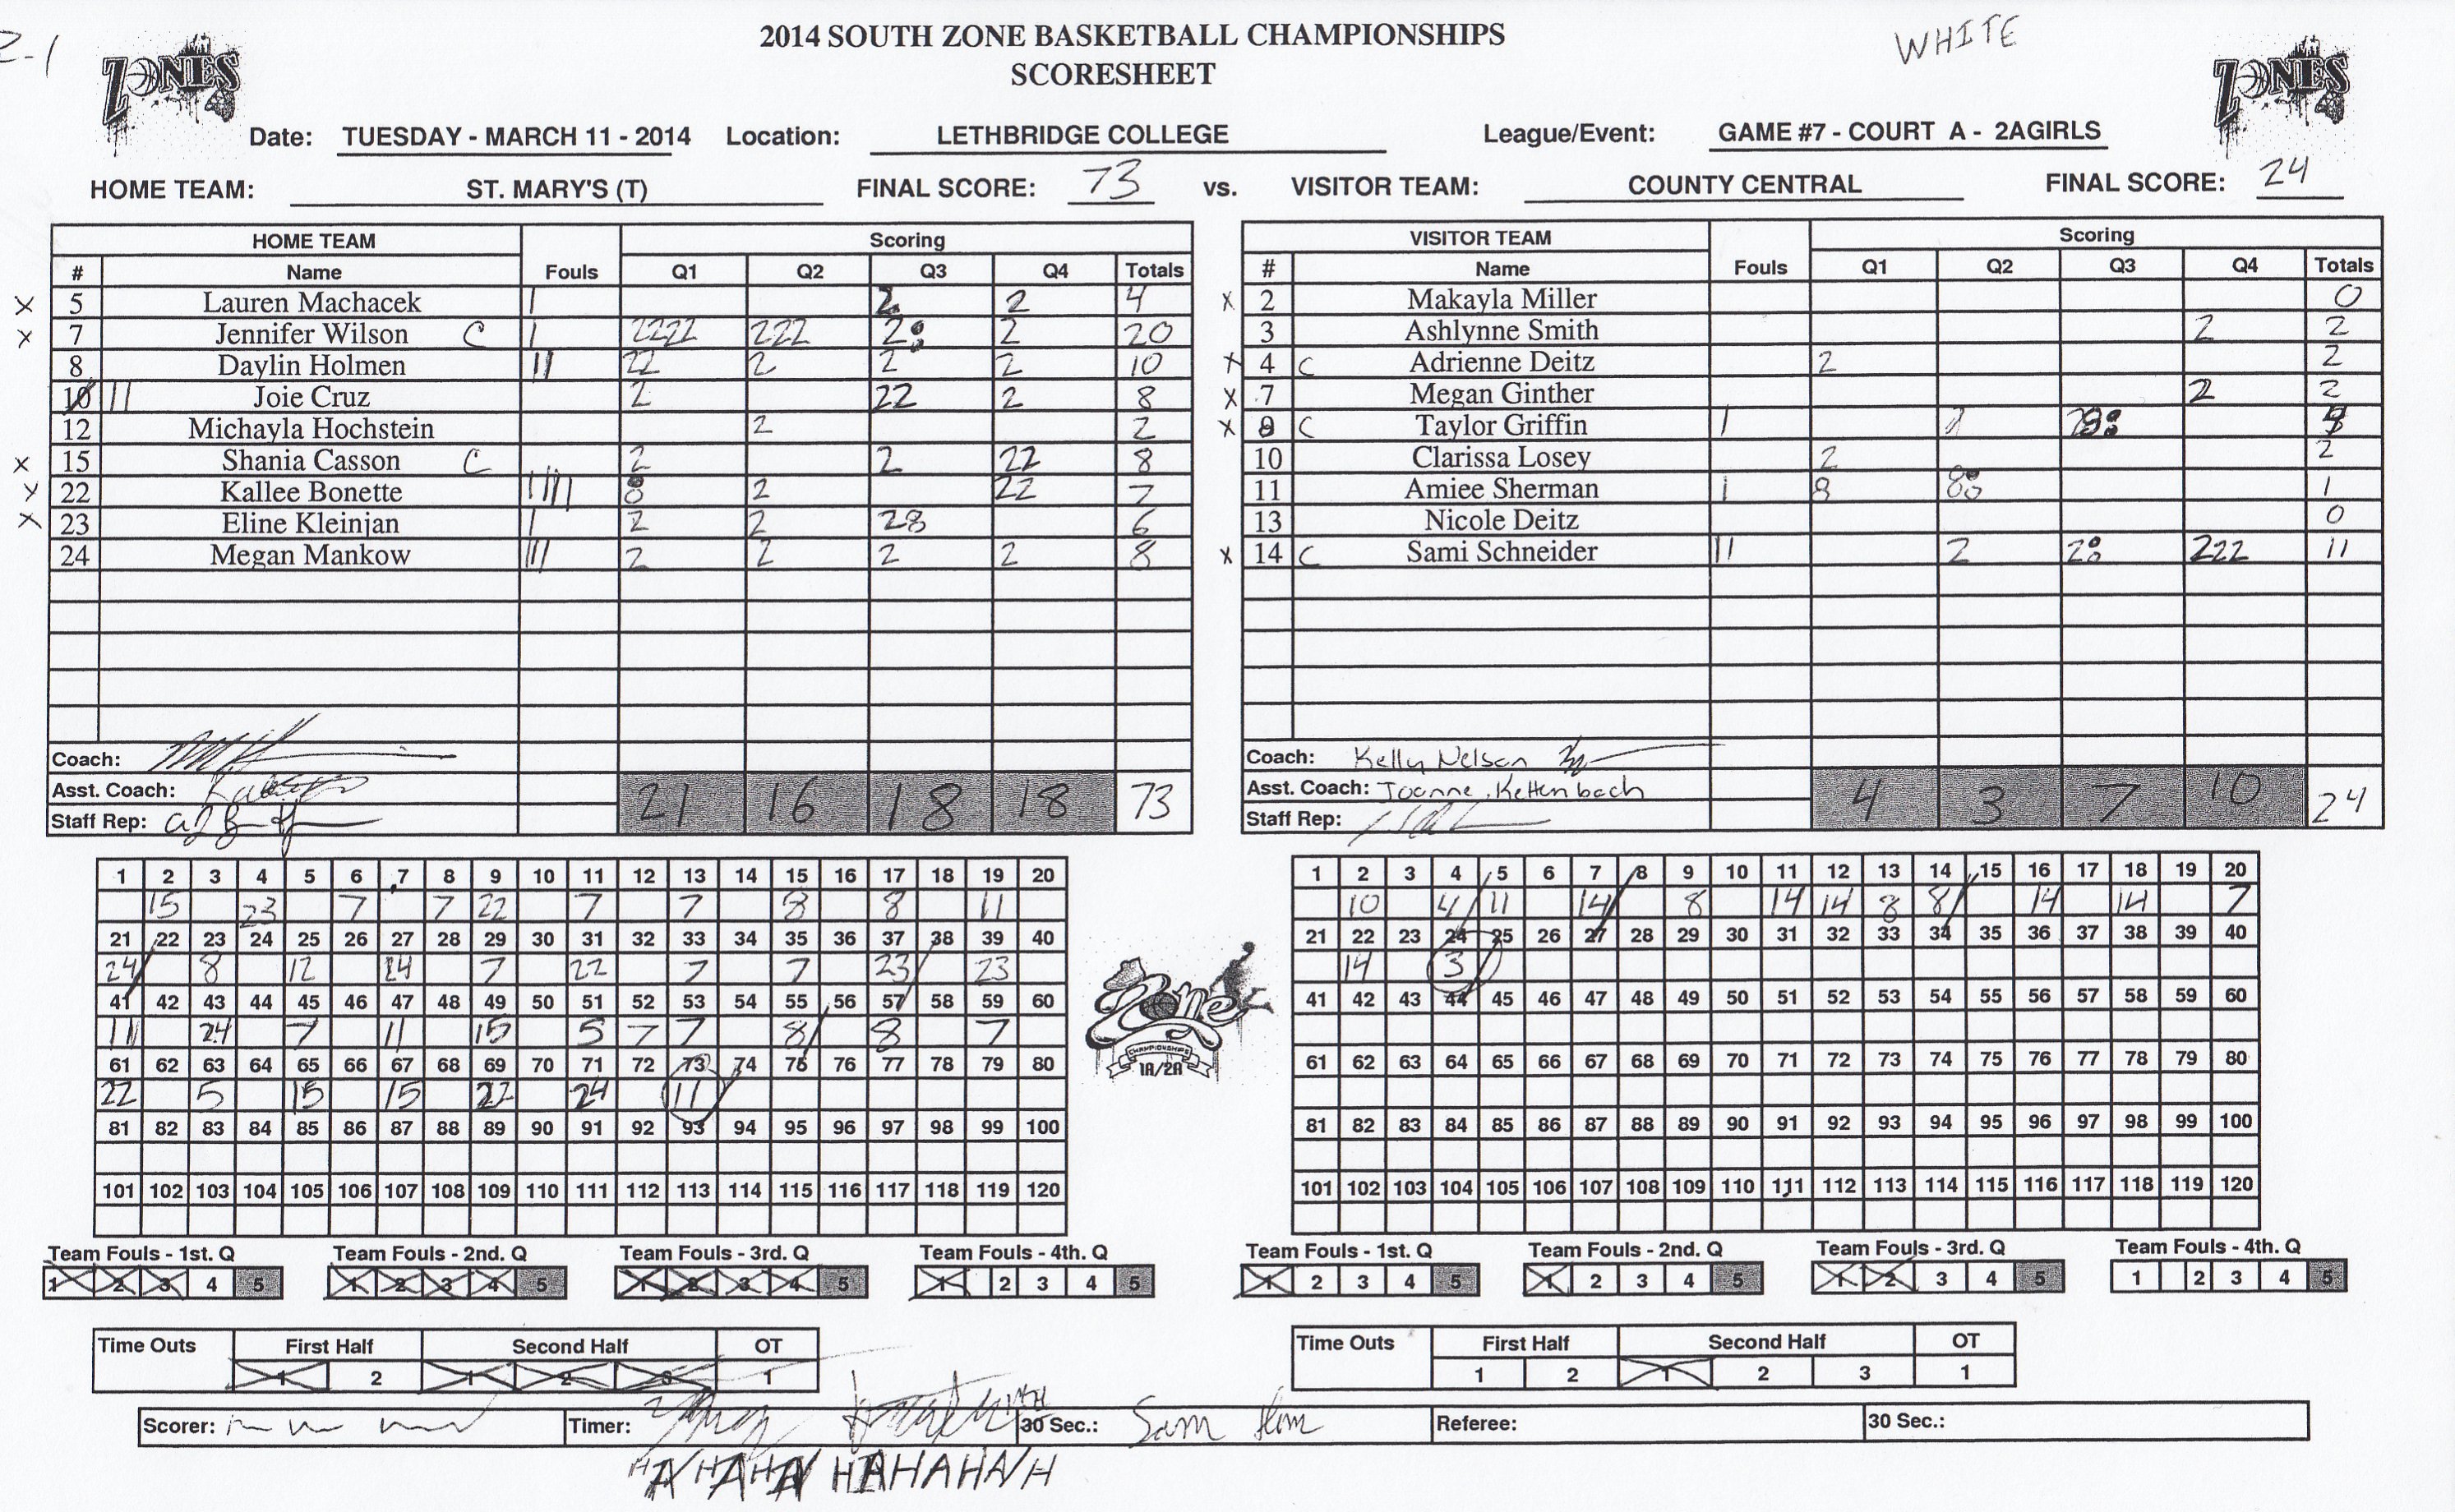 2-1
2014 SOUTH ZONE BASKETBALL CHAMPIONSHIPS
WHITE
SCORESHEET
ZONES
ZONES
Date: TUESDAY - MARCH 11 - 2014 Location: LETHBRIDGE COLLEGE League/Event: GAME #7 - COURT A - 2AGIRLS
HOME TEAM: ST. MARY'S (T) FINAL SCORE: 73 vs. VISITOR TEAM: COUNTY CENTRAL FINAL SCORE: 24
HOME TEAM Scoring
# Name Fouls Q1 Q2 Q3 Q4 Totals
X 5 Lauren Machacek I 2 2 4
X 7 Jennifer Wilson C I 2222 222 2 2 20
8 Daylin Holmen II 22 2 2 2 10
10 11 Joie Cruz 2 22 2 8
12 Michayla Hochstein 2 2
X 15 Shania Casson C 2 2 22 8
X 22 Kallee Bonette IIII 2 22 7
X 23 Eline Kleinjan I 2 2 28 6
24 Megan Mankow III 2 2 2 2 8
Coach:
Asst. Coach:
Staff Rep:
21 16 18 18 73
VISITOR TEAM Scoring
# Name Fouls Q1 Q2 Q3 Q4 Totals
X 2 Makayla Miller 0
3 Ashlynne Smith 2 2
X 4 C Adrienne Deitz 2 2
X 7 Megan Ginther 2 2
X C Taylor Griffin I
10 Clarissa Losey 2 2
11 Amiee Sherman I 8 1
13 Nicole Deitz 0
X 14 C Sami Schneider II 2 2 222 11
Coach: Kelly Nelson
Asst. Coach: Joanne Kettenbach
Staff Rep:
4 3 7 10 24
1 2 3 4 5 6 7 8 9 10 11 12 13 14 15 16 17 18 19 20
15 23 7 7 22 7 7 8 8 11
21 22 23 24 25 26 27 28 29 30 31 32 33 34 35 36 37 38 39 40
24 8 12 24 7 22 7 7 23 23
41 42 43 44 45 46 47 48 49 50 51 52 53 54 55 56 57 58 59 60
11 24 7 11 15 5 7 7 8 8 7
61 62 63 64 65 66 67 68 69 70 71 72 73 74 75 76 77 78 79 80
22 5 15 15 22 24 11
81 82 83 84 85 86 87 88 89 90 91 92 93 94 95 96 97 98 99 100
101 102 103 104 105 106 107 108 109 110 111 112 113 114 115 116 117 118 119 120
Zone
CHAMPIONSHIPS
1A/2A
1 2 3 4 5 6 7 8 9 10 11 12 13 14 15 16 17 18 19 20
10 4 11 14 8 14 14 8 8 14 14 7
21 22 23 24 25 26 27 28 29 30 31 32 33 34 35 36 37 38 39 40
14 3
41 42 43 44 45 46 47 48 49 50 51 52 53 54 55 56 57 58 59 60
61 62 63 64 65 66 67 68 69 70 71 72 73 74 75 76 77 78 79 80
81 82 83 84 85 86 87 88 89 90 91 92 93 94 95 96 97 98 99 100
101 102 103 104 105 106 107 108 109 110 111 112 113 114 115 116 117 118 119 120
Team Fouls - 1st. Q Team Fouls - 2nd. Q Team Fouls - 3rd. Q Team Fouls - 4th. Q
1 2 3 4 5 1 2 3 4 5 1 2 3 4 5 1 2 3 4 5
Team Fouls - 1st. Q Team Fouls - 2nd. Q Team Fouls - 3rd. Q Team Fouls - 4th. Q
1 2 3 4 5 1 2 3 4 5 1 2 3 4 5 1 2 3 4 5
Time Outs First Half Second Half OT
1 2 1 2 3 1
Time Outs First Half Second Half OT
1 2 1 2 3 1
Scorer: Timer: 30 Sec.: Sam Referee: 30 Sec.:
HAHAHA HAHAHAH